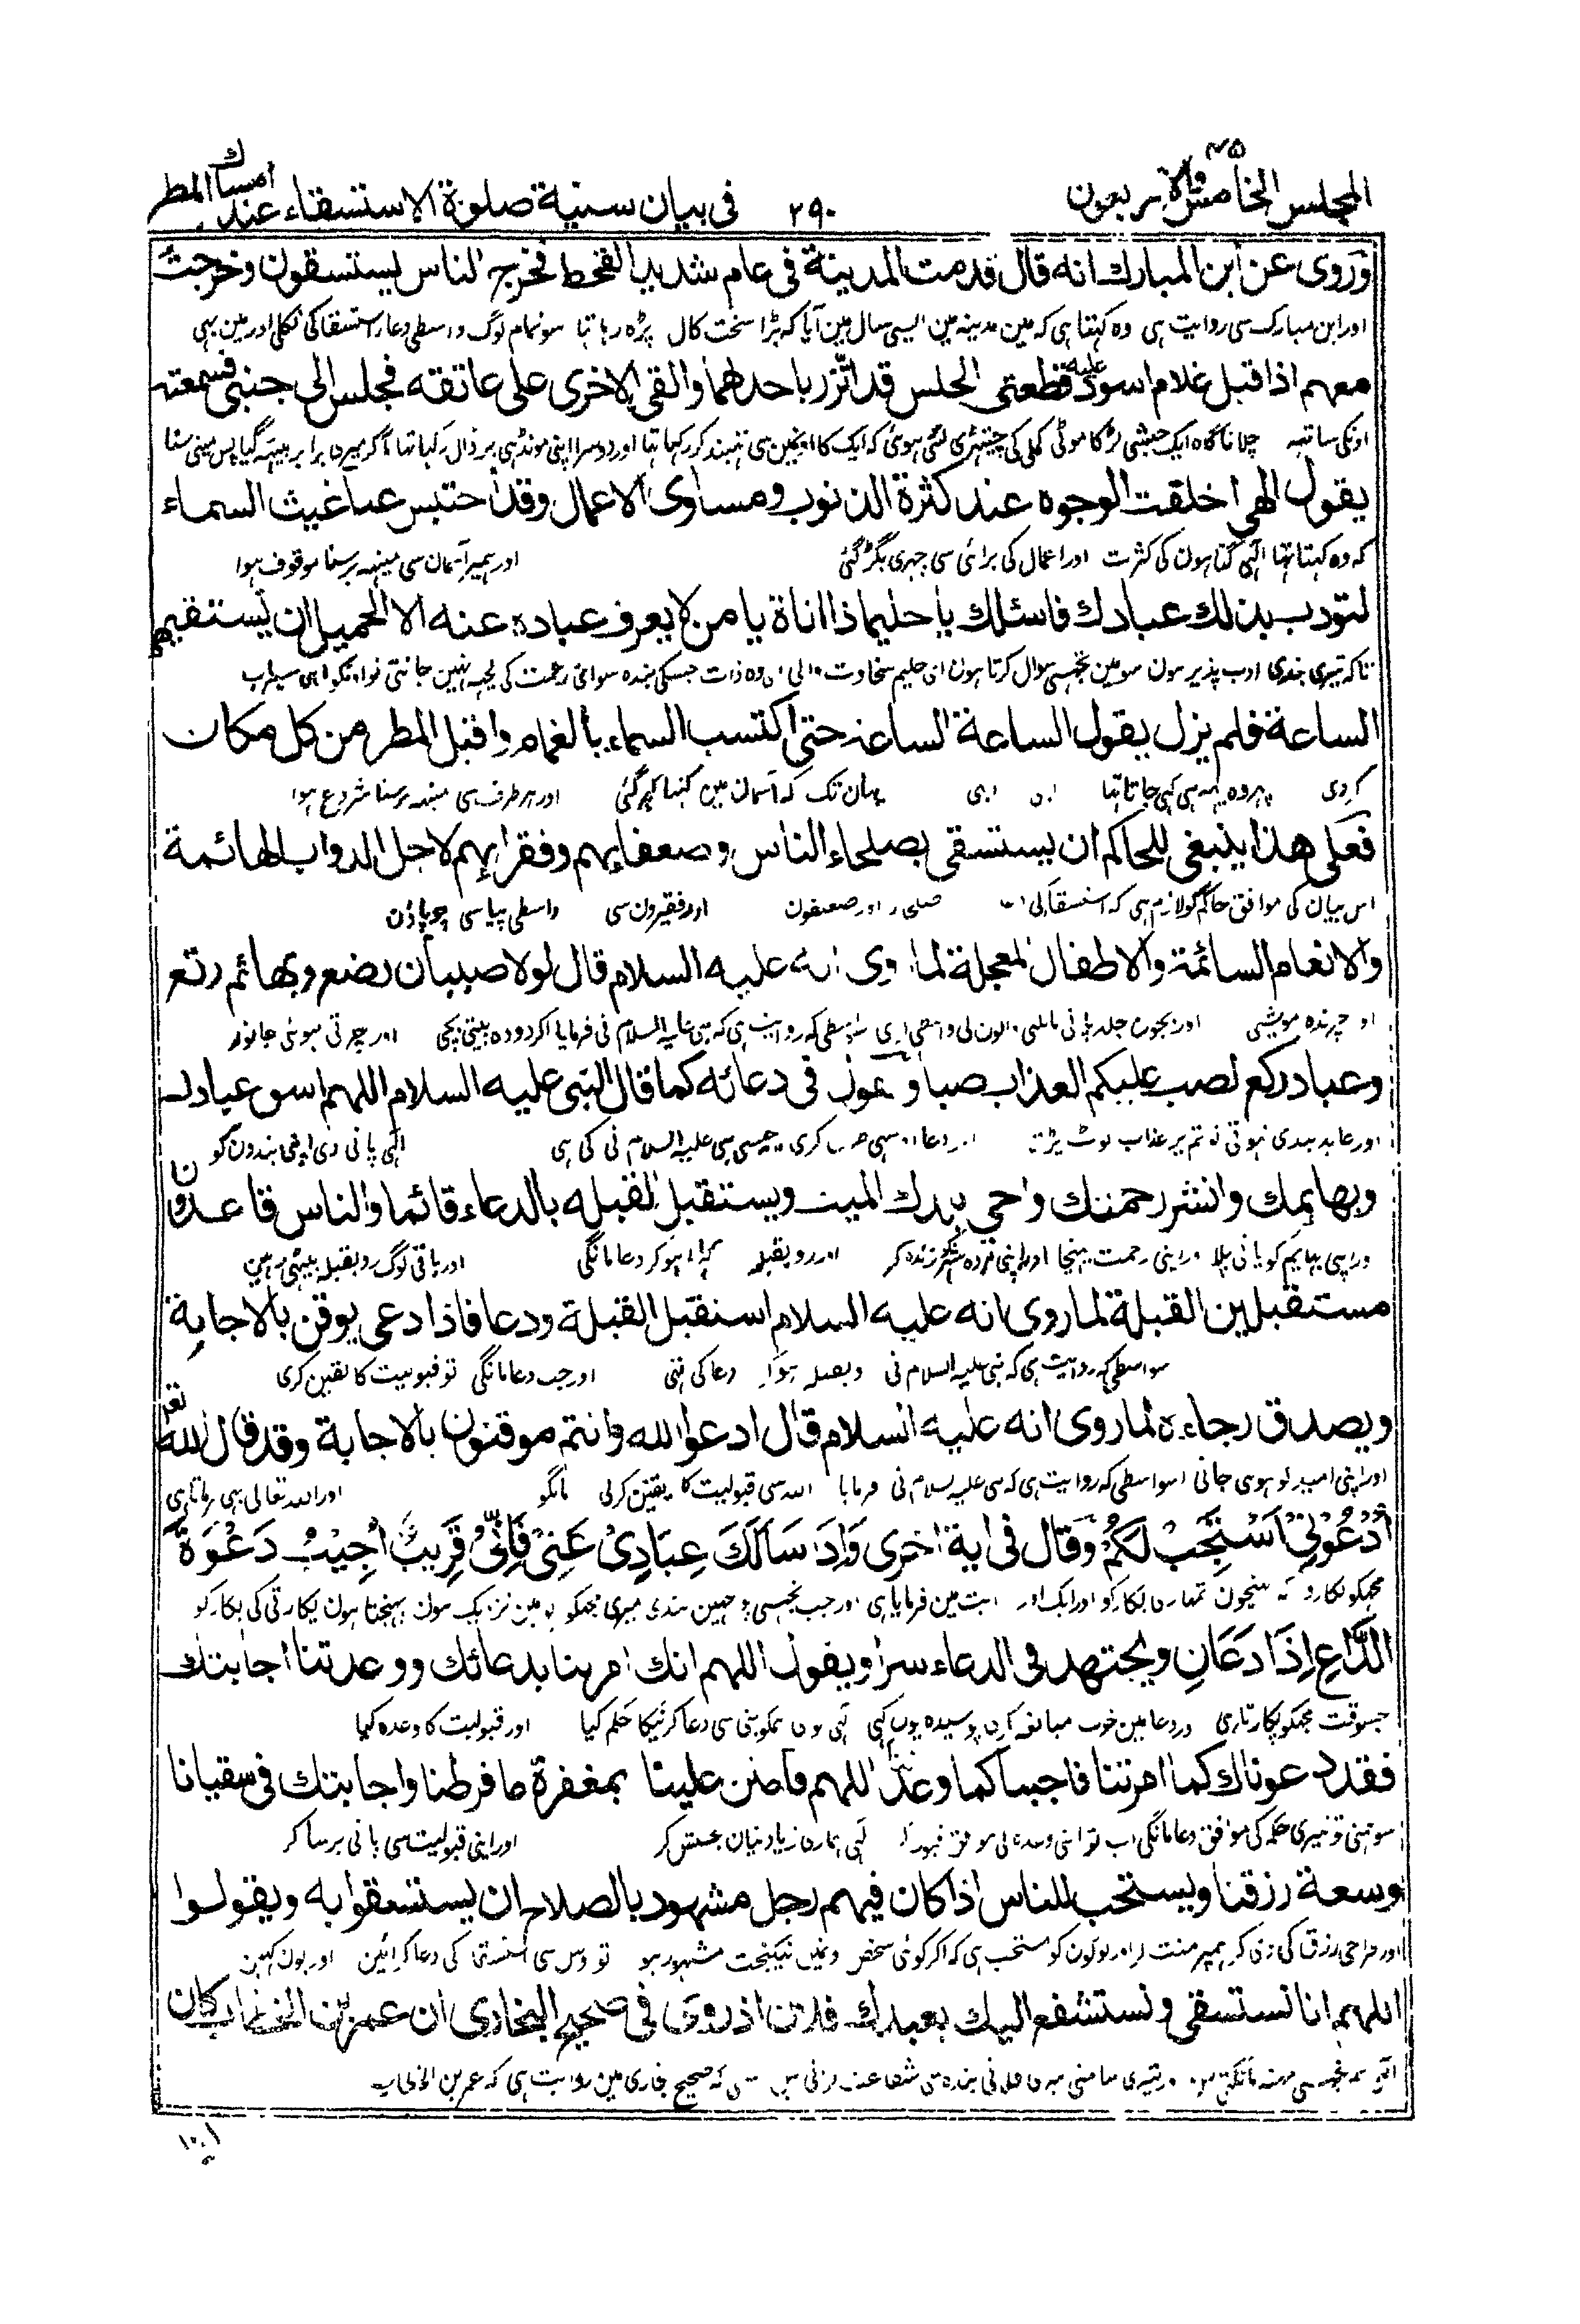 المجلس الخامس والاربعون ۲۹۰ فى بيان سنية صلوة الاستسقاء عند امساك المطر
۴۵
وروى عن ابن المبارك انه قال قدمت المدينة فى عام شديد القحط فخرج الناس يستسقون وخرجت
اور ابن مبارک سی روایت ہی وہ کہتا ہی کہ مین مدینہ مین ایسی سال مین آیا کہ بڑا سخت کال پڑہ رہا تہا سو تمام لوگ واسطی دعاء استسقا کی نکلی اور مین بہی
معهم اذا قبل غلام اسود عليه قطعتى الحلس قد اتزر باحدهما والقى الاخرى على عاتقه فجلس الى جنبى فسمعته
اونکی ساتہہ چلا ناگاہ ایک حبشی لڑکا موٹی کملی کی چتہڑی لئی ہوئی کہ ایک کا اونمین سی تہبند کر رکہا تہا اور دوسرا اپنی مونڈہی پر ڈال رکہا تہا آکر میری برابر بیٹہہ گیا پس مینی سنا
يقول الهى اخلقت الوجوه عند كثرة الذنوب ومساوى الاعمال وقد احتبس عنا غيث السماء
کہ وہ کہتا تہا الٰہی گناہون کی کثرت اور اعمال کی برائی سی چہری بگڑ گئی اور ہمپر آسمان سی مینہہ برسنا موقوف ہوا
لتودب بذلك عبادك فاسئلك يا حليما ذا اناة يا من لا يعرف عباده عنه الا الجميل ان تسقيهم
تاکہ تیری بندی ادب پذیر ہون سو مین تجہسی سوال کرتا ہون ای حلیم سخاوت والی ای وہ ذات جسکی بندہ سوای رحمت کی کچہہ نہین جانتی تو اونکو ابہی سیراب
الساعة فلم يزل يقول الساعة الساعة حتى اكتسب السماء بالغمام واقبل المطر من كل مكان
کردی پہر وہ یہہ ہی کہی جاتا تہا ابہی ابہی یہان تک کہ آسمان مین گہٹا گہر گئی اور ہر طرف سی مینہہ برسنا شروع ہوا
فعلى هذا ينبغى للحاكم ان يستسقى بصلحاء الناس وضعفائهم وفقرائهم لاجل الدواب الهائمة
اس بیان کی موافق حاکم کو لازم ہی کہ استسقا کی صلحا اور ضعیفون اور فقیرون سی واسطی پیاسی چوپاؤن
والانعام السائمة والاطفال المعجلة لما روى انه عليه السلام قال لولا صبيان رضع وبهائم رتع
اور چرندہ مویشی اور بچون جلد پانی مانگنی والون کی واسطی اسواسطی کہ روایت ہی کہ نبی علیہ السلام نی فرمایا اگر دودہ پیتی بچی اور چرتی ہوئی جانور
وعباد ركع لصب عليكم العذاب صبا و فى دعائه كما قال النبى عليه السلام اللهم اسق عبادك
اور عابد بندی نہوتی تو تم پر عذاب ٹوٹ پڑتا اور دعا کری جیسی نبی علیہ السلام نی کی ہی الٰہی پانی دی اپنی بندون کو
وبهائمك وانشر رحمتك واحى بلدك الميت ويستقبل القبلة بالدعاء قائما والناس قاعدون
اور اپنی بہایم کو پانی پلا اور اپنی رحمت پہنچا اور اپنی مردہ شہر کو زندہ کر اور رو بقبلہ کہڑا ہو کر دعا مانگی اور باقی لوگ رو بقبلہ بیٹہی رہین
مستقبلين القبلة لما روى انه عليه السلام استقبل القبلة ودعا فاذا دعى يوقن بالاجابة
اسواسطی کہ روایت ہی کہ نبی علیہ السلام نی رو بقبلہ ہو کر دعا کی تہی اور جب دعا مانگی تو قبولیت کا یقین کری
ويصدق رجاءه لما روى انه عليه السلام قال ادعوا الله وانتم موقنون بالاجابة وقد قال الله تعالى
اور اپنی امید پوری ہوی جانی اسواسطی کہ روایت ہی کہ نبی علیہ السلام نی فرمایا اللہ سی قبولیت کا یقین کرکی مانگو اور اللہ تعالی بہی فرماتا ہی
اُدْعُوْنِىْ اَسْتَجِبْ لَكُمْ وقال فى اية اخرى وَاِذَا سَاَلَكَ عِبَادِىْ عَنِّىْ فَاِنِّىْ قَرِيْبٌ اُجِيْبُ دَعْوَةَ
مجہکو پکارو کہ پہنچون تمہاری پکار کو اور ایک اور آیت مین فرمایا ہی اور جب تجہسی پوچہین بندی میری مجہکو تو مین نزدیک ہون پہنچتا ہون پکارتی کی پکار کو
الدَّاعِ اِذَا دَعَانِ ويجتهد فى الدعاء سرا ويقول اللهم انك امرتنا بدعائك ووعدتنا اجابتك
جسوقت مجہکو پکارتا ہی اور دعا مین خوب مبالغہ کری پوشیدہ یون کہی الٰہی تونی ہمکو اپنی سی دعا کرنیکا حکم کیا اور قبولیت کا وعدہ کیا
فقد دعوناك كما امرتنا فاجبنا كما وعدتنا اللهم فامنن علينا بمغفرة ما فرطنا واجابتك فى سقيانا
سو ہمنی تو تیری حکم کی موافق دعا مانگی اب تو اپنی وعدہ کی موافق قبول کر الٰہی ہماری زیادتیان بخشش کر اور اپنی قبولیت سی پانی برسا کر
وسعة رزقنا ويستحب للناس اذا كان فيهم رجل مشهود بالصلاح ان يستسقوا به ويقولوا
اور فراخی رزق کی کر ہمپر منت کر اور لوگون کو مستحب ہی کہ اگر کوئی شخص اونمین نیکبخت مشہور ہو تو اوس سی استسقا کی دعا کرائین اور یون کہین
اللهم انا نستسقى ونستشفع اليك بعبدك فلان اذ روى فى صحيح البخارى ان عمر بن الخطاب كان
تیری سامنی تیری فلانی بندہ کی شفاعت کہ صحیح بخاری مین روایت ہی کہ عمر بن الخطاب